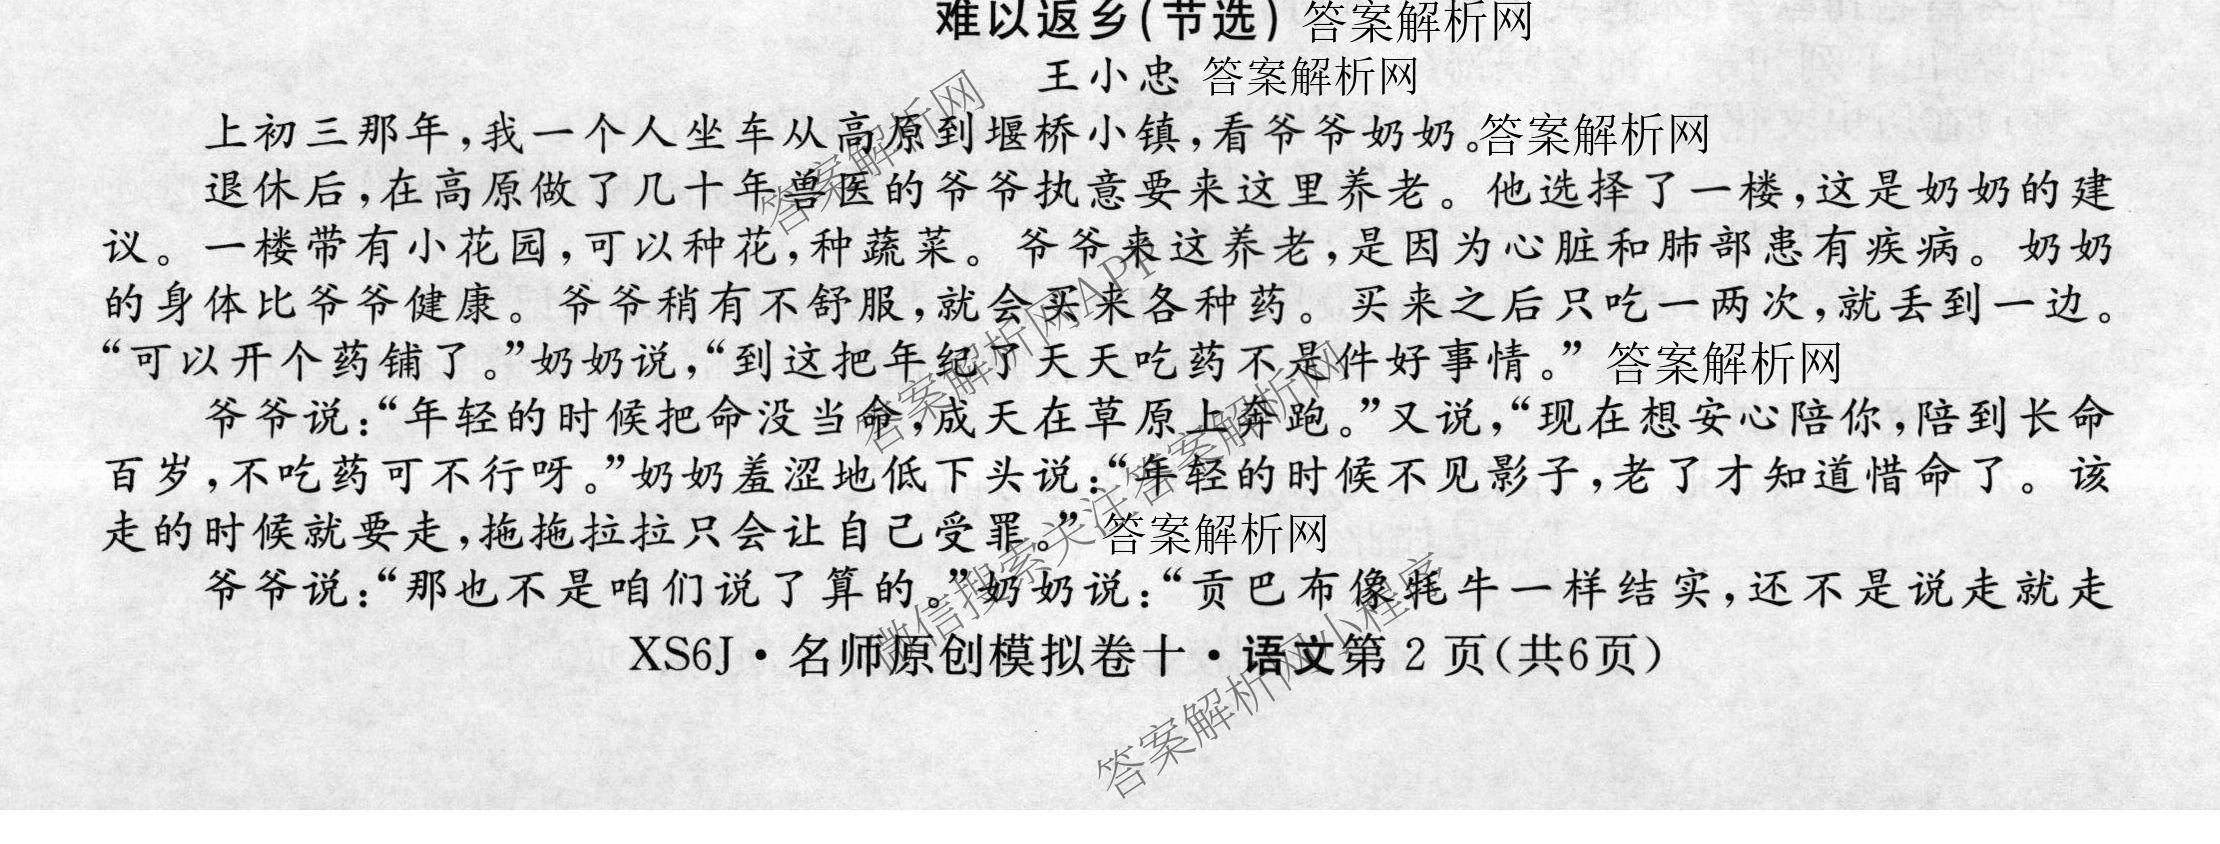 难以返乡(节选) 答案解析网
王小忠 答案解析网
上初三那年,我一个人坐车从高原到堰桥小镇,看爷爷奶奶。答案解析网
退休后,在高原做了几十年兽医的爷爷执意要来这里养老。他选择了一楼,这是奶奶的建
议。一楼带有小花园,可以种花,种蔬菜。爷爷来这养老,是因为心脏和肺部患有疾病。奶奶
的身体比爷爷健康。爷爷稍有不舒服,就会买来各种药。买来之后只吃一两次,就丢到一边。
“可以开个药铺了。”奶奶说,“到这把年纪了天天吃药不是件好事情。” 答案解析网
爷爷说:“年轻的时候把命没当命,成天在草原上奔跑。”又说,“现在想安心陪你,陪到长命
百岁,不吃药可不行呀。”奶奶羞涩地低下头说:“年轻的时候不见影子,老了才知道惜命了。该
走的时候就要走,拖拖拉拉只会让自己受罪。” 答案解析网
爷爷说:“那也不是咱们说了算的。”奶奶说:“贡巴布像牦牛一样结实,还不是说走就走
XS6J·名师原创模拟卷十·语文第 2 页(共6页)
答案解析网
答案解析网APP
微信搜索关注答案解析网
答案解析网小程序